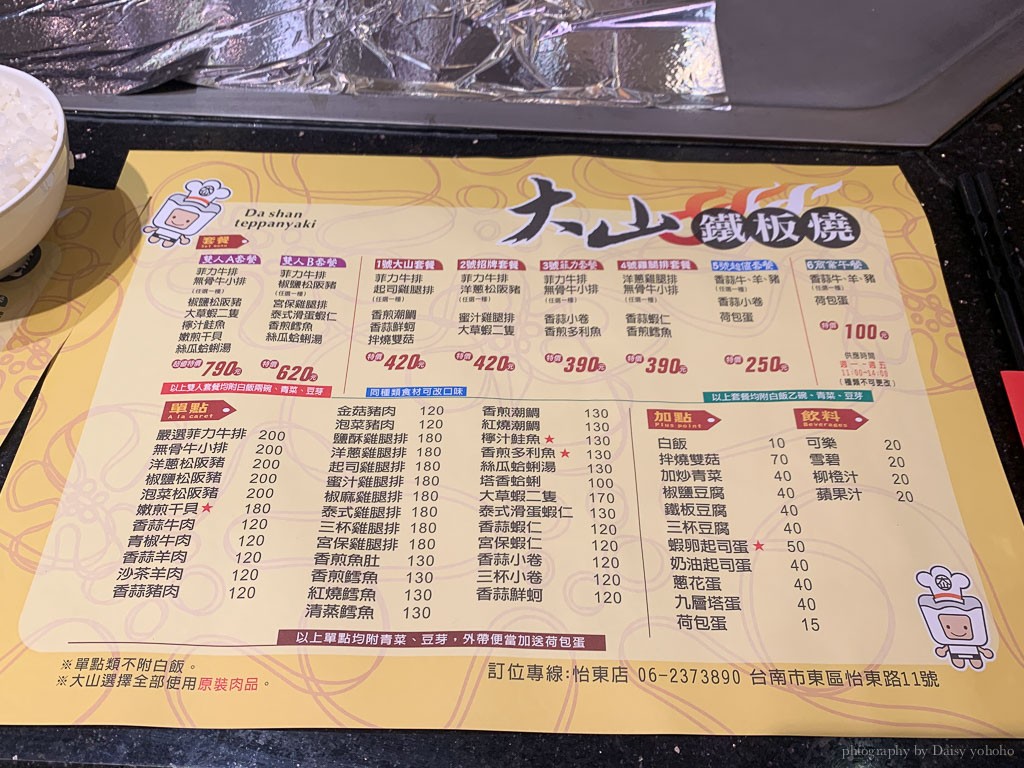 Da shan
teppanyaki
大山 鐵板燒
套餐
雙人A套餐
菲力牛排
無骨牛小排
(任選一種)
椒鹽松阪豬
大草蝦二隻
檸汁鮭魚
嫩煎干貝
絲瓜蛤蜊湯
790元
雙人B套餐
菲力牛排
椒鹽松阪豬
(任選一種)
宮保雞腿排
泰式滑蛋蝦仁
香煎鱈魚
絲瓜蛤蜊湯
特價620元
以上雙人套餐均附白飯兩碗、青菜、豆芽
1號大山套餐
菲力牛排
起司雞腿排
(任選一種)
香煎潮鯛
香蒜鮮蚵
拌燒雙菇
特價420元
2號招牌套餐
菲力牛排
洋蔥松阪豬
(任選一種)
蜜汁雞腿排
大草蝦二隻
特價420元
3號菲力套餐
菲力牛排
無骨牛小排
(任選一種)
香蒜小卷
香煎多利魚
特價390元
4號雞腿排套餐
洋蔥雞腿排
無骨牛小排
(任選一種)
香蒜蝦仁
香煎鱈魚
特價390元
5號超值套餐
香蒜牛、羊、豬
(任選一種)
香蒜小卷
荷包蛋
特價250元
6商會午餐
香蒜牛、羊、豬
(任選一種)
荷包蛋
特價100元
供應時間
週一~週五
11:00~14:00
(種類不可更改)
同種類食材可改口味
以上套餐均附白飯乙碗、青菜、豆芽
單點
A la caret
嚴選菲力牛排 200
無骨牛小排 200
洋蔥松阪豬 200
椒鹽松阪豬 200
泡菜松阪豬 200
嫩煎干貝★ 180
香蒜牛肉 120
青椒牛肉 120
香蒜羊肉 120
沙茶羊肉 120
香蒜豬肉 120
金菇豬肉 120
泡菜豬肉 120
鹽酥雞腿排 180
洋蔥雞腿排 180
起司雞腿排 180
蜜汁雞腿排 180
椒麻雞腿排 180
泰式雞腿排 180
三杯雞腿排 180
宮保雞腿排 180
香煎魚肚 130
香煎鱈魚 130
紅燒鱈魚 130
清蒸鱈魚 130
香煎潮鯛 130
紅燒潮鯛 130
檸汁鮭魚★ 130
香煎多利魚★ 130
絲瓜蛤蜊湯 130
塔香蛤蜊 100
大草蝦二隻 170
泰式滑蛋蝦仁 130
香蒜蝦仁 120
宮保蝦仁 120
香蒜小卷 120
三杯小卷 120
香蒜鮮蚵 120
加點
Plus point
白飯 10
拌燒雙菇 70
加炒青菜 40
椒鹽豆腐 40
鐵板豆腐 40
三杯豆腐 40
蝦卵起司蛋★ 50
奶油起司蛋 40
蔥花蛋 40
九層塔蛋 40
荷包蛋 15
飲料
Beverages
可樂 20
雪碧 20
柳橙汁 20
蘋果汁 20
以上單點均附青菜、豆芽，外帶便當加送荷包蛋
※單點類不附白飯。
※大山選擇全部使用原裝肉品。
訂位專線:怡東店 06-2373890 台南市東區怡東路11號
photography by Daisy yohoho